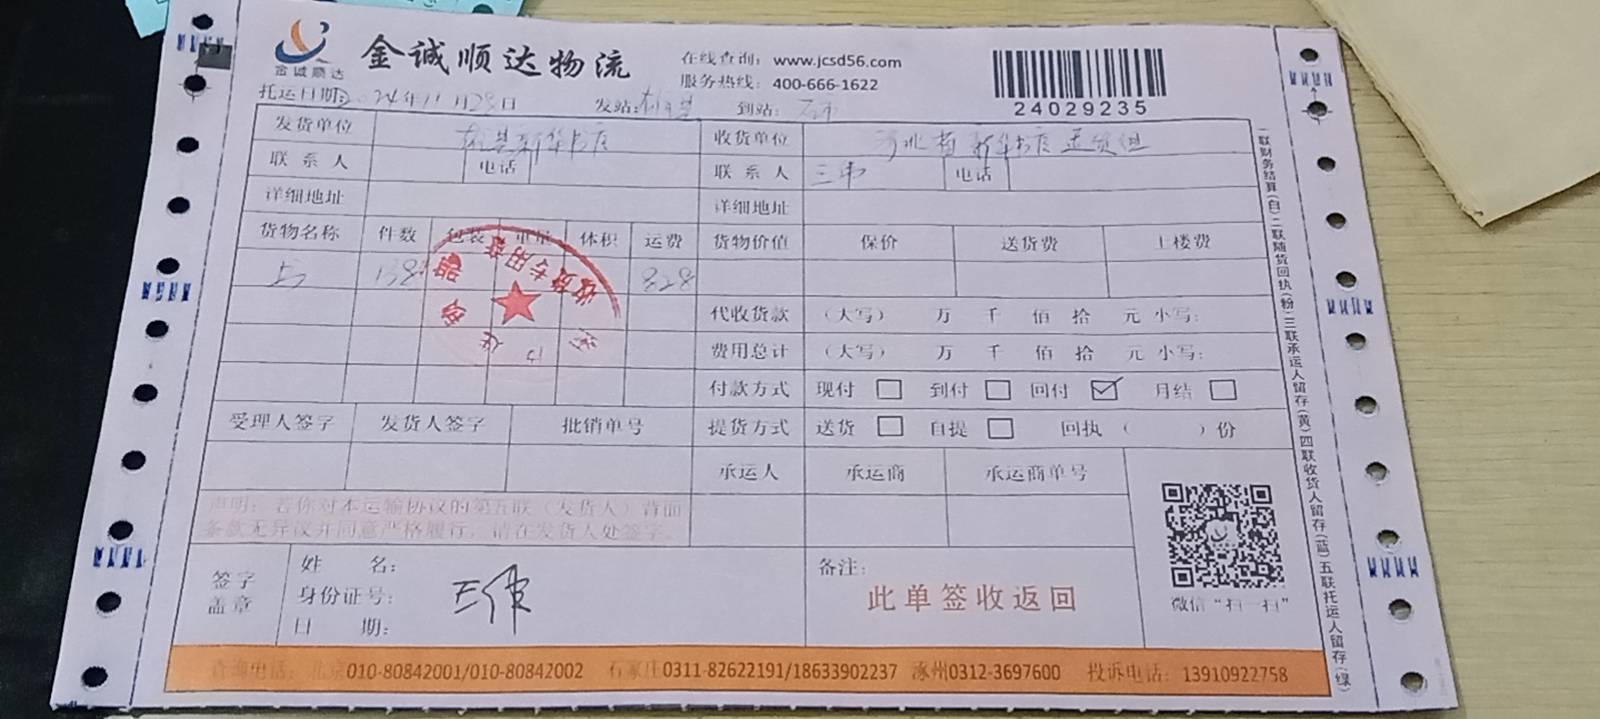 金诚顺达
金诚顺达物流
在线查询: www.jcsd56.com
服务热线: 400-666-1622
24029235
托运日期: 24年11月28日 发站: 到站:
发货单位 新华书店 收货单位 河北省新华书店退货组
联系人 电话 联系人 王伟 电话
详细地址 详细地址
货物名称 件数 包装 重量 体积 运费 货物价值 保价 送货费 上楼费
138 828
收货专用章
代收货款 (大写) 万 千 佰 拾 元 小写:
费用总计 (大写) 万 千 佰 拾 元 小写:
付款方式 现付 到付 回付 月结
受理人签字 发货人签字 批销单号 提货方式 送货 自提 回执 ( ) 份
承运人 承运商 承运商单号
声明: 若你对本运输协议的第五联 (发货人) 背面
条款无异议并同意严格履行, 请在发货人处签字。
签字
盖章
姓 名:
身份证号: 王伟
日 期:
备注:
此单签收返回
微信“扫一扫”
查询电话: 北京010-80842001/010-80842002 石家庄0311-82622191/18633902237 涿州0312-3697600 投诉电话: 13910922758
一联财务结算(白) 二联随货回执(粉) 三联承运人留存(黄) 四联收货人留存(蓝) 五联托运人留存(绿)